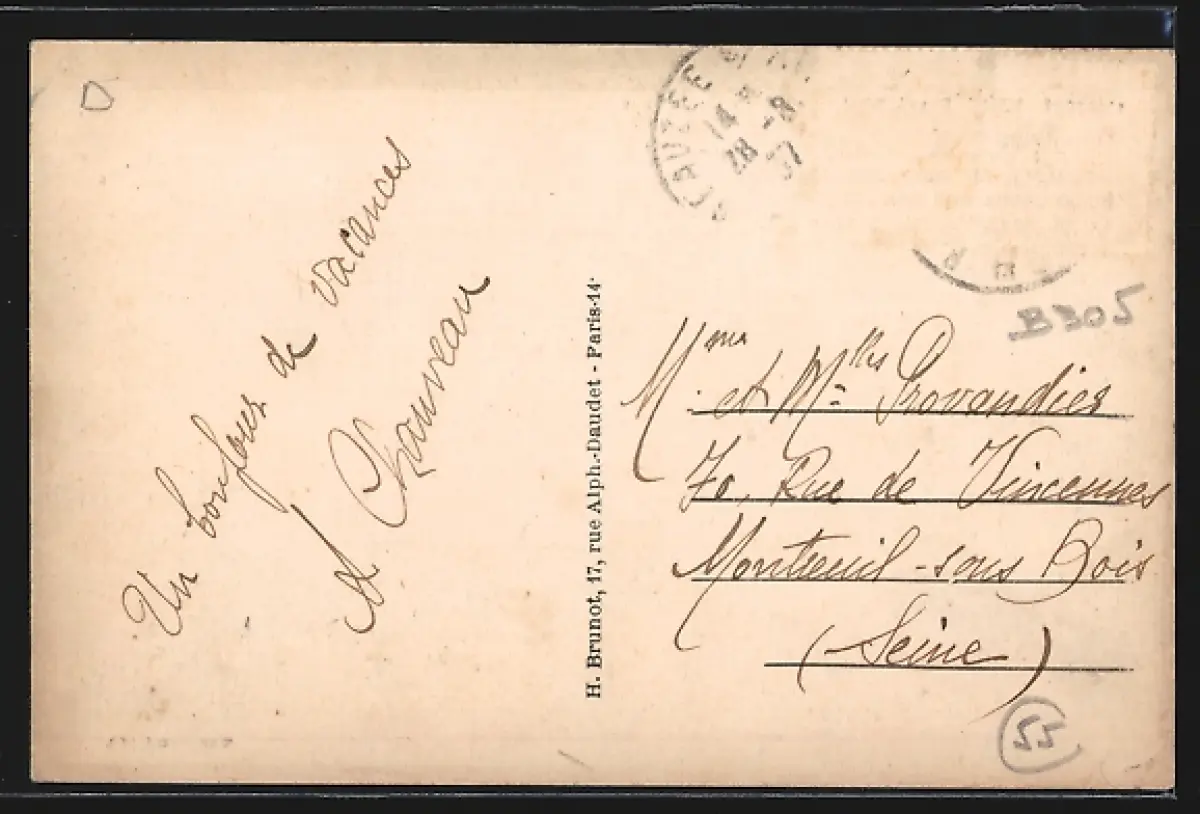 Un bonjour de vacances
A Chauveau
H. Brunot, 17, rue Alph.-Daudet - Paris-14ᵉ
14
28 -8
37
B305
Mme et Mlles Provendier
70, Rue de Vincennes
Montreuil-sous Bois
(Seine)
55